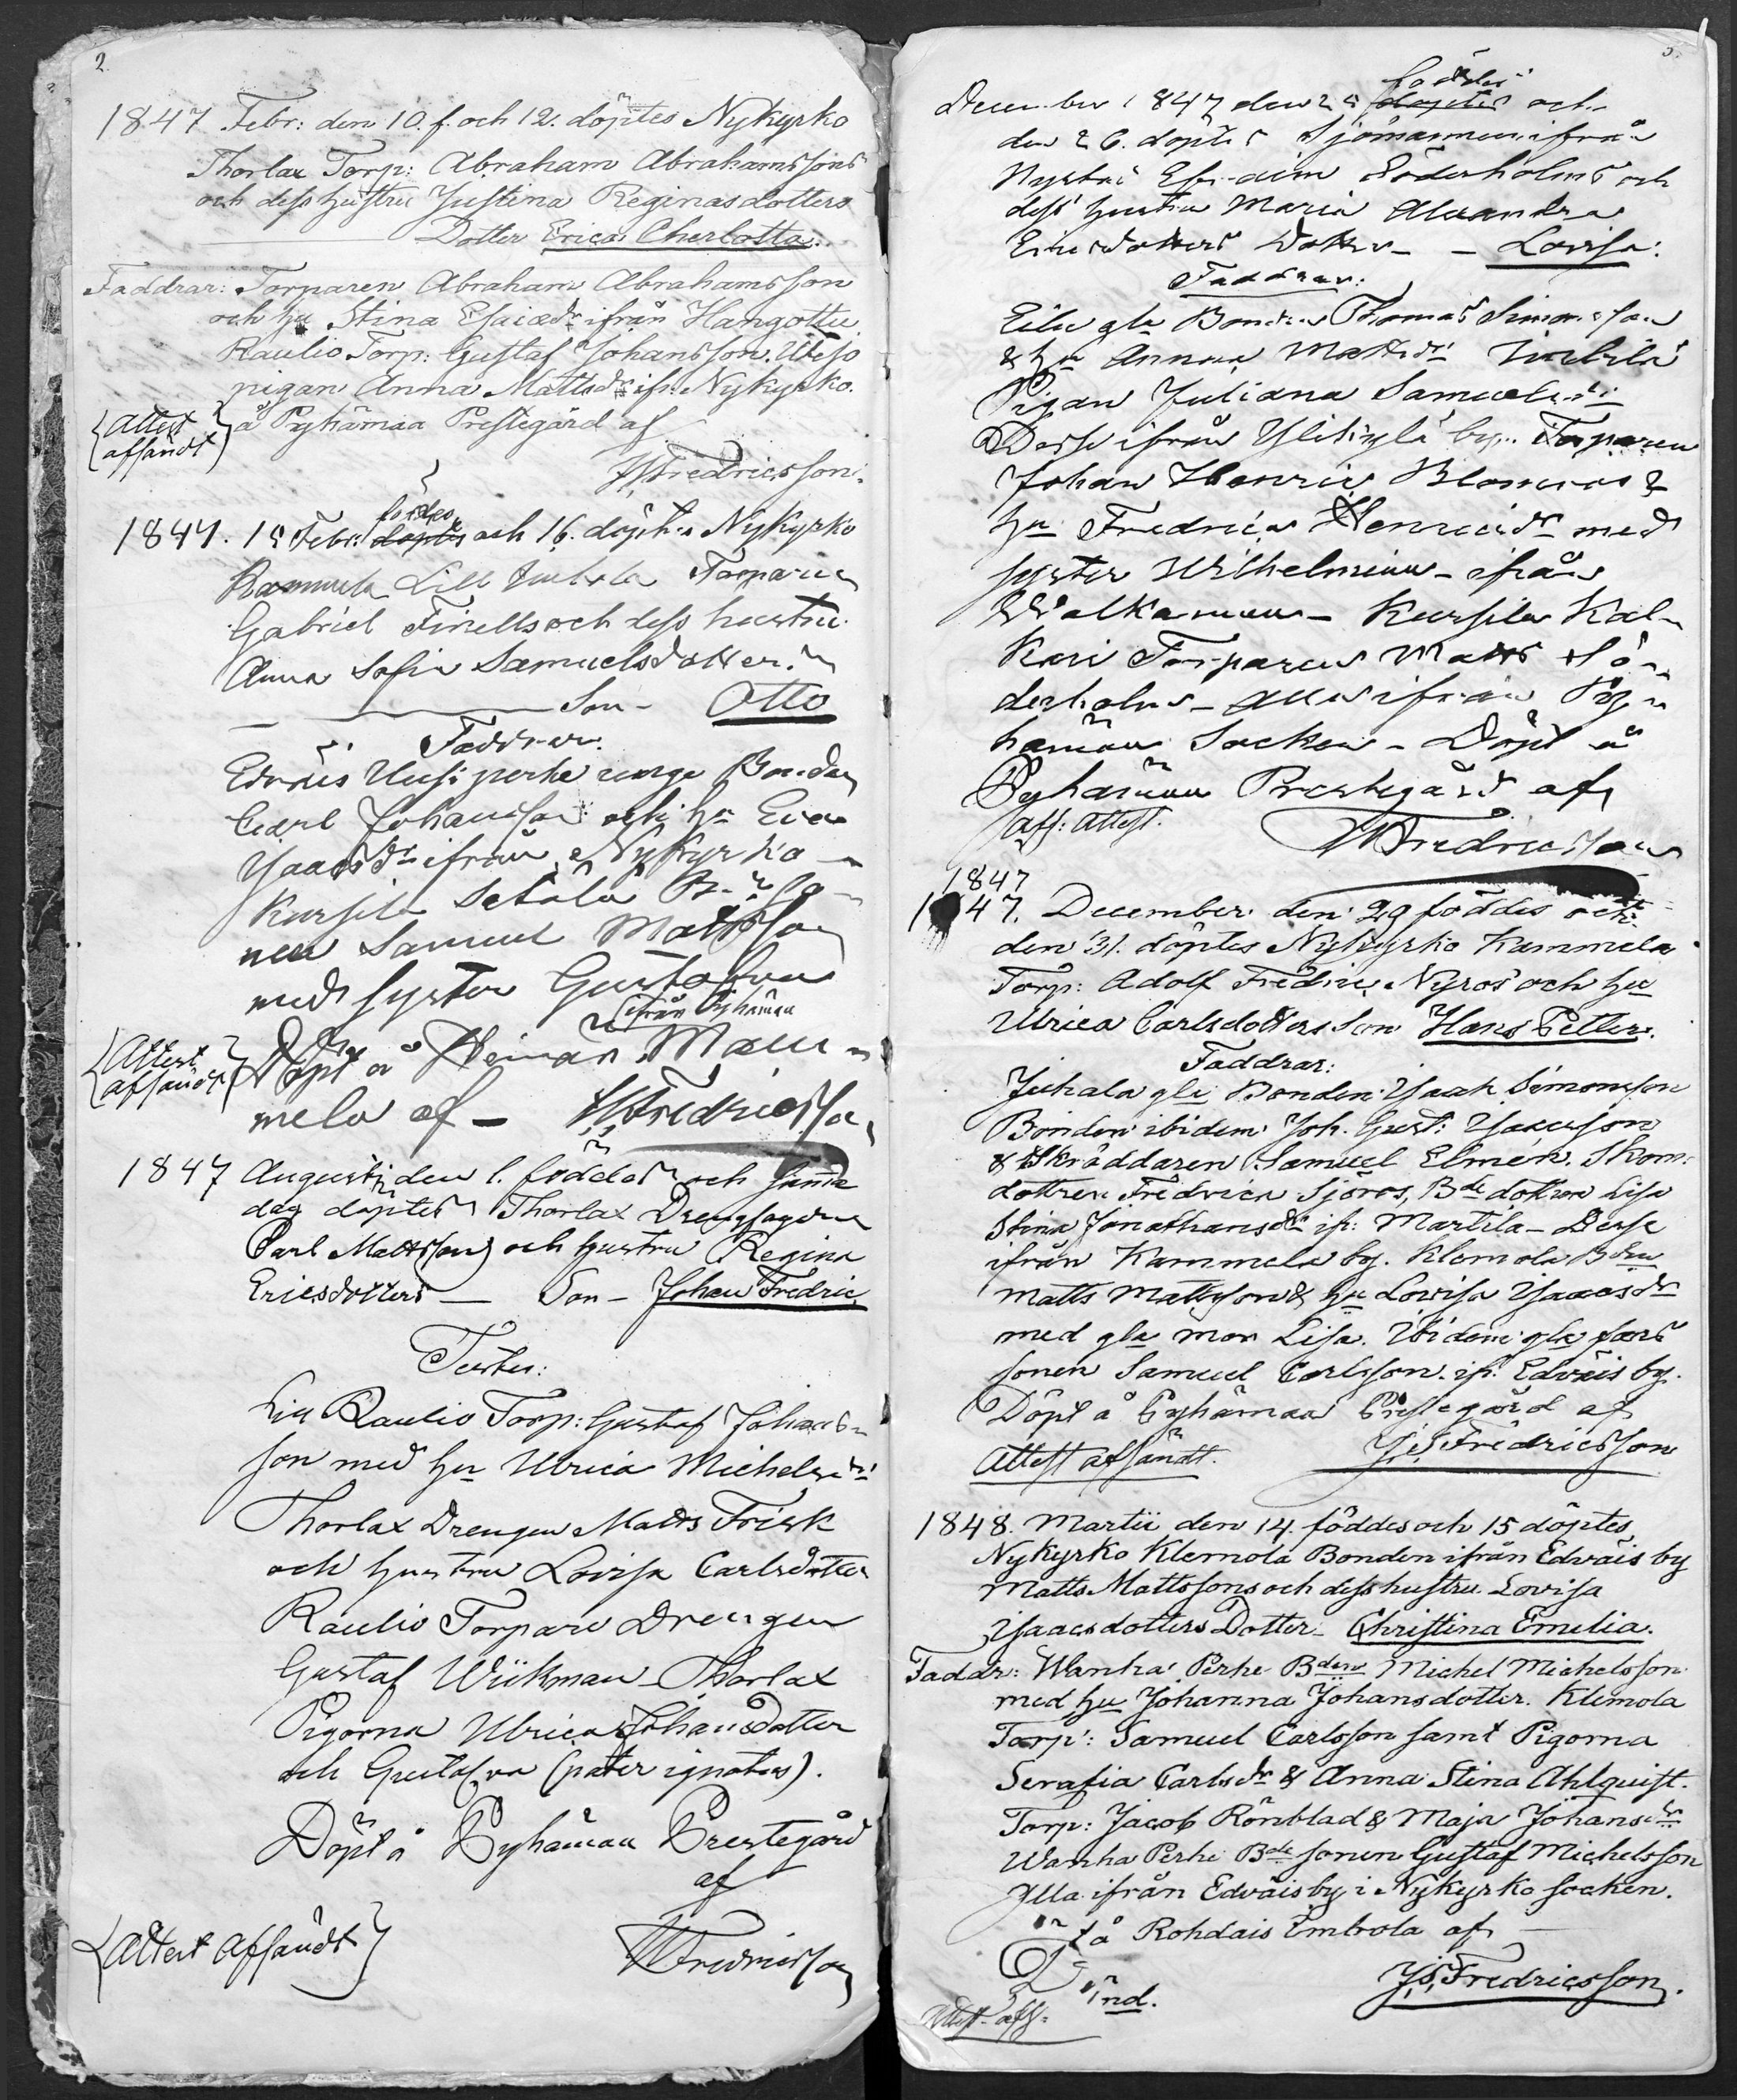 2.
1847 Febr: den 10. f. och 12. döptes Nykyrko
Thorlax Torp: Abraham Abrahamssons
och dess hustru Justina Reginasdotters
Dotter Erica Cherlotta.
Faddrar: Torparen Abraham Abrahamsson
och hu Stina Esaiædr ifrån Hangottu
Raulio Torp: Gustaf Johansson.
pigan Anna Mattsdr ifr: Nykyrko.
{Attest afsändt} å Pyhämaa Prestegård af
JSFredricsson.
1847. 15 Febr: föddes döptes och 16. döptes Nykyrko
Kammela Lill Torparen
Gabriel Finells och dess hustru
Anna Sofia Samuelsdotters
Son - Otto
Faddrar:
Edväis Uusiperhe unge Bonden
Carl Johansson och hu Eva
Isaacsdr ifrån Nykyrko -
Kursila Setälä Bso-
nen Samuel Mattsson
med syster Gustafva
ifrån Pyhämaa
{Attest afsändt} Döpt å Heinäis Mau-
mela af - JSFredricsson
1847 Augusti den 1. föddes och samma
dag döptes Thorlax Drengsagorne
Carl Mattsson och hustru Regina
Ericsdotters - Son - Johan Fredric
Testes:
Raulio Torp: Gustaf Johans-
son med hu Ulrica Michelsdr
Thorlax Drengen Matts Frisk
och hustru Lovisa Carlsdotter
Raulio Torpare Drengen
Gustaf Wiikman - Thorlax
Pigorna Ulrica Johansdotter
och Gustafva (pater ignotus).
Döpt å Pyhämaa Prestegård
af
{Attest afsändt} JSFredricsson
December 1847 den 25 föddes döptes och
den 26. döptes Sjömannen ifrån
Nystad Efraim Söderholms och
dess hustru Maria Alexandra
Ericsdotters Dotter - - Lovisa:
Faddrar:
gla Bonden Thomas Simonsson
& hu Anna Mattsdr
Pigan Juliana Samuelsdr
Desse ifrån Ylikylä by. Torparen
Johan Henric Blomroos &
hu Fredrica Henricsdr med
syster Wilhelmina - ifrån
Walkamaa - Kursila Kal-
kari Torparen Matts Sö-
derholm - alla ifrån Py-
hämaa Socken - Döpt å
Pyhämaa Prestegård af
Aff: attest. JSFredricsson
1847
1847. December den 29 föddes och
den 31. döptes Nykyrko Kammela
Torp: Adolf Fredric Nyros och hu
Ulrica Carlsdotters Son Hans Petter.
Faddrar:
Juhala gla Bonden Isaak Simonsson
Bonden ibidem Joh. Gust: Isacsson
& Skräddaren Samuel Elmén. Skom:
dottren Fredrica Sjöros, Bde dottren Lisa
Stina Jonathansdr ifr: Martila - Desse
ifrån Kammela by. Klemola Bden
Matts Mattsson & hu Lovisa Isaacsdr
med gla mor Lisa. Ibidem gla fars
sonen Samuel Carlsson. ifr: Edväis by.
Döpt å Pyhämaa Prestegård af
Attest afsändt. J,S,Fredricsson
1848. Martii den 14. föddes och 15 döptes
Nykyrko Klemola Bonden ifrån Edväis by
Matts Mattssons och dess hustru Lovisa
Isaacsdotters Dotter - Christina Emelia.
Faddr: Wanha Perhe Bden Michel Michelsson
med hu Johanna Johansdotter. Klemola
Torp: Samuel Carlsson samt Pigorna
Serafia Carlsdr & Anna Stina Ahlquist.
Torp: Jacob Rönblad & Maja Johansdr
Wanha Perhe Bde sonen Gustaf Michelsson
Alla ifrån Edväisby i Nykyrko socken.
Döpt å Rohdais Embrola af -
ind. J,S,Fredricsson.
Attest aff: